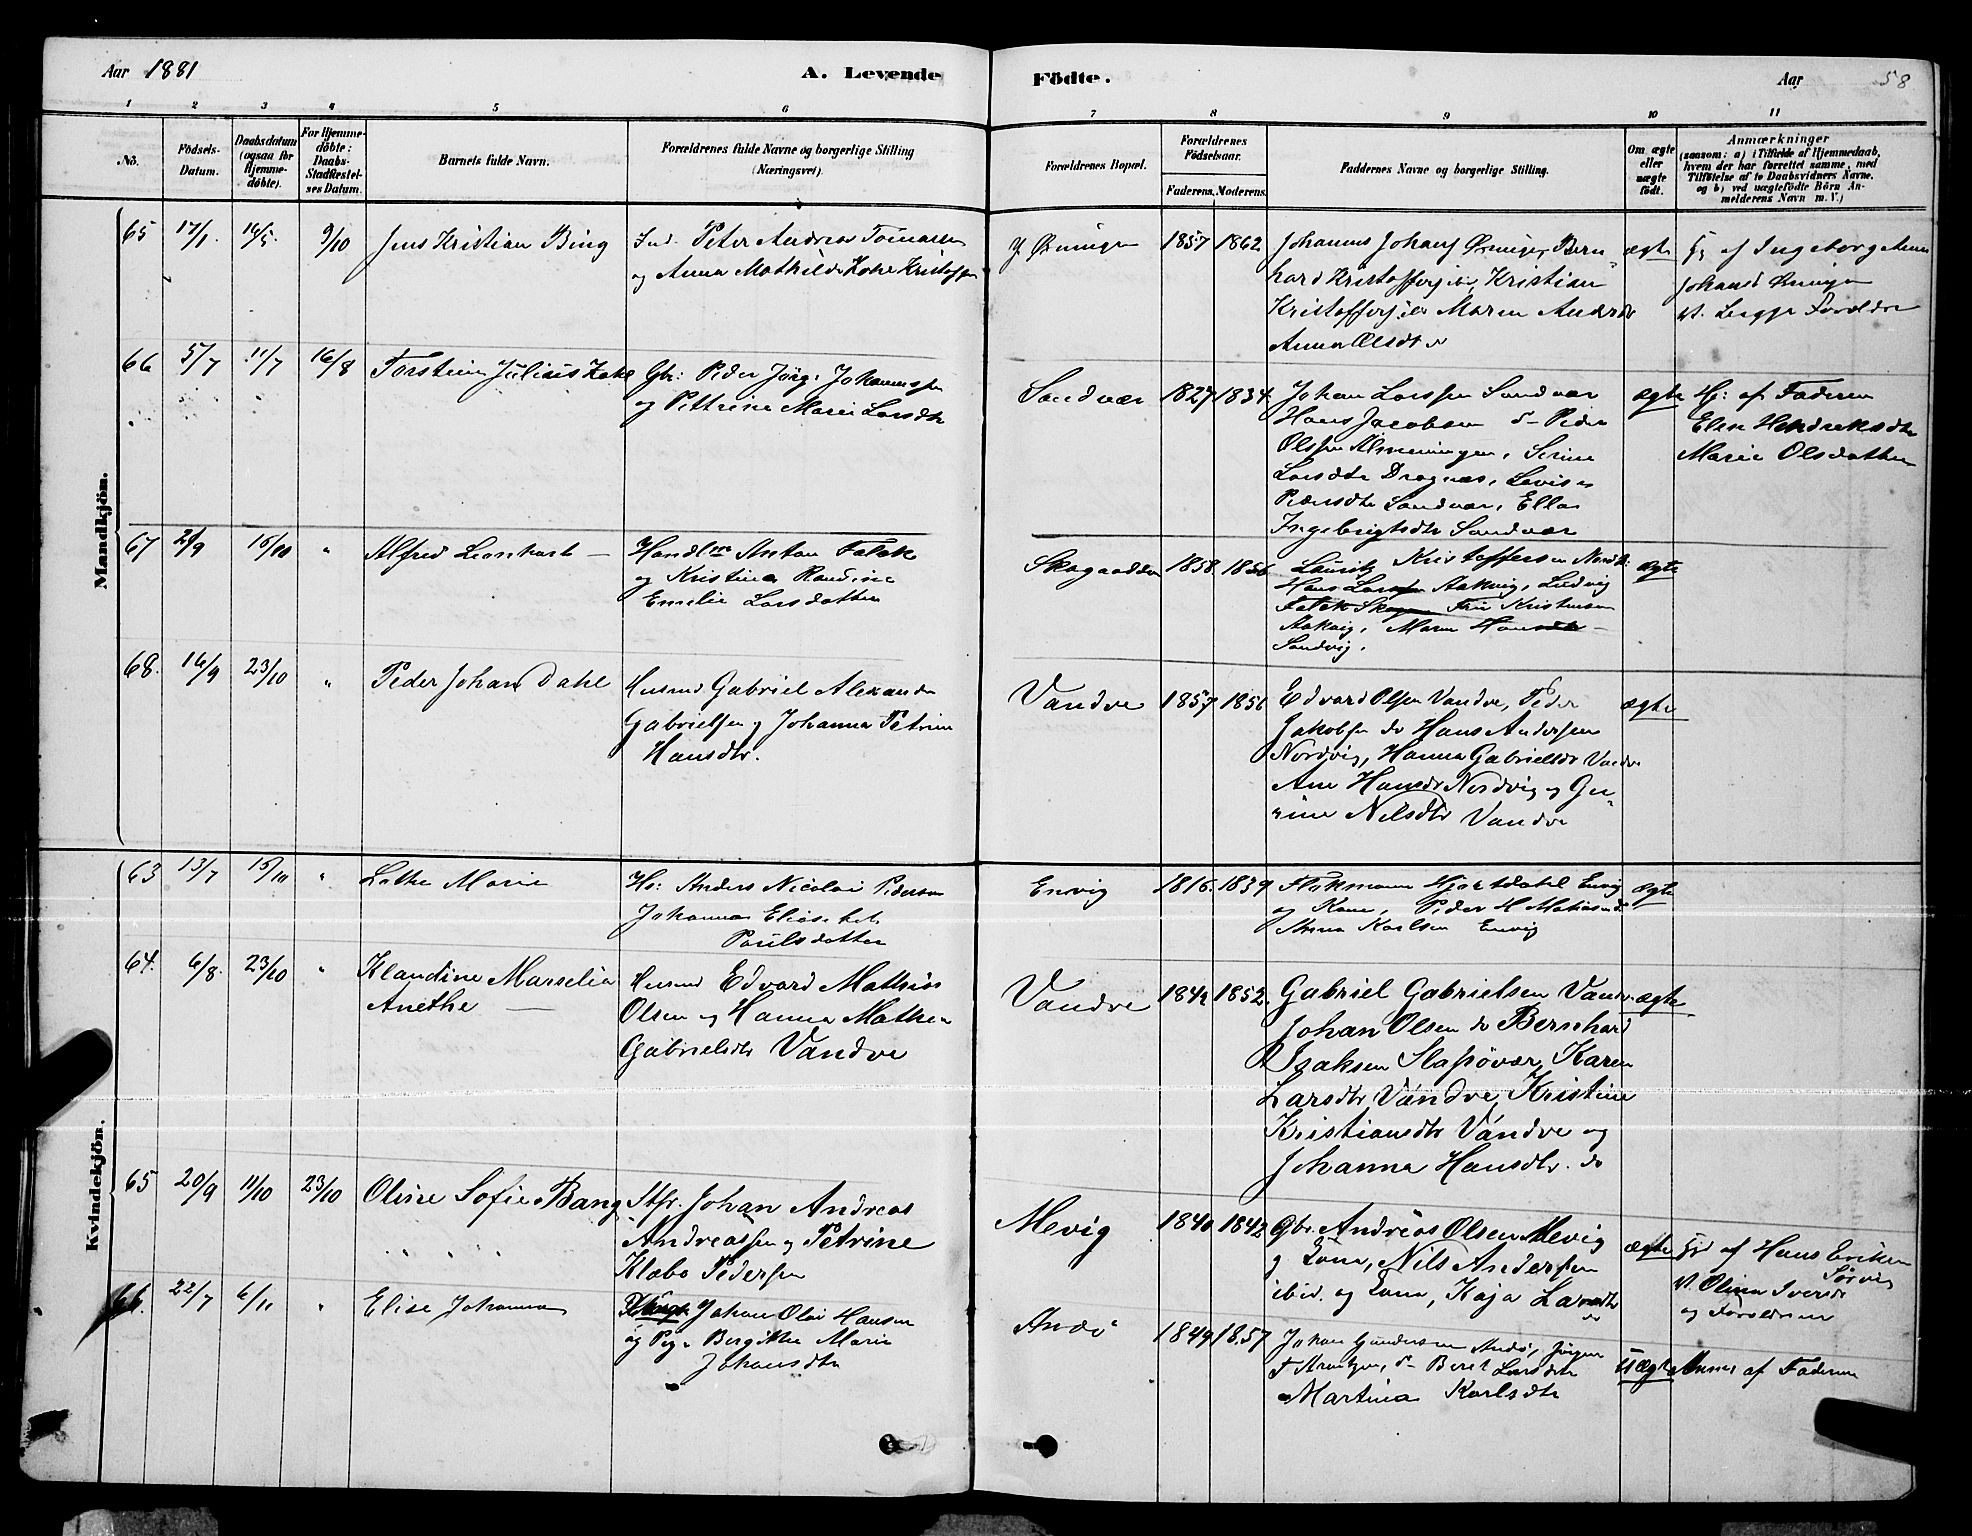 Aar 1881
A. Levende
Födte.
Aar
58
1 2 3 4 5 6 7 8 9 10 11
No.
Födsels-
Datum.
Daabsdatum
(ogsaa for
Hjemme-
döbte).
For Hjemme-
döbte:
Daabs-
Stadfæstel-
ses Datum.
Barnets fulde Navn.
Forældrenes fulde Navne og borgerlige Stilling
(Næringsvei).
Forældrenes Bopæl.
Forældrenes
Födselsaar.
Faderens. Moderens.
Faddernes Navne og borgerlige Stilling.
Om ægte
eller
uægte
født.
Anmærkninger
(saasom: a) i Tilfælde af Hjemmedaab,
hvem der har forrettet samme, med
Tilföielse af to Daabsvidners Navne.
og b) ved uægtefödte Börn An-
melderens Navn m. V.)
Mandkjön.
65 17/1. 14/5 9/10 Jens Kristian Bing
Ind. Peter Andreas Tomassen
og Anna Mathilde Kristoffsen
Y. Øningen 1857 1862
Johannes Johans Øningen, Bern
hard Kristoffersen ibi, Kristian
Kristoffersen ib, Maren Andrdtr
Anna Olsdtr
ægte
Hj af Ingeborg Anna
Johansd Øningen
vt. begge Forældre
66 5/7 11/7 16/8 Torstein Julius
Gbr: Peder Jörg. Johannessen
og Pettrine Marie Larsdtr
Sandvær 1827 1834.
Johan Larssen Sandvær
Hans Jacobsen Peder
Olssen Almenningen, Serine
Larsdtr Dragnæs, Lovise
Pedersdtr Sandvær, Ellen
Ingebrigtsdtr Sandvær
ægte
Hj: af Faderen
Elen Hendreksdtr
Marie Olsdatter
67 2/9 16/10 " Alfred Leonhart —
Handl Anton Falck
og Kristine Randine
Emelie Larsdatter
1858. 1856
Lauritz Kristoffersen
Hans Larssen Aakvig, Ludvig
Falck Kristensen
Aakvig, Maren Hansdtr
Sandvig.
ægte
68. 16/9 23/10 " Peder Johan Dahl
Husmd Gabriel Alexander
Gabrielsen og Johanna Petrine
Hansdtr.
Vandve 1857 1856
Edvard Olsen Vandve, Peder
Jakobsen do Hans Andersen
Nordvig, Hanna Gabrielsdtr Vandve
Ane Hansdtr Nordvig og Gu
rine Nilsdtr Vandve
ægte
Kvindekjön.
63 13/7 15/10 " Lothe Marie
Hs: Anders Nicolai Pedersen
Johanna Elisebet
Poulsdatter
Envig 1816. 1839
Hjortdahl Envig
og Kone, Peder M. Mathiasen
Anna Karlsen Envig
ægte
64. 6/8. 23/10 " Klaudine Marselia
Anethe —
Husmd Edvard Mathias
Olsen og Hanna Mathea
Gabrielsdtr Vandve
Vandve 1849 1852.
Gabriel Gabrielsen Vandv.
Johan Olsen do Bernhard
Isaksen Slapøvær, Karen
Larsdtr Vandve, Kristine
Kristiansdtr Vandve og
Johanna Hansdtr. do
ægte
65 20/9 11/10 23/10 Oline Sofie Bang
Johan Andreas
Andreassen og Petrine
Klæbo Pedersen
Mevig 1840 1842
Gbr. Andreas Olsen Mevig
og Kone, Nils Andersen
ibid. og Kone, Kaja Larsdtr
ægte
Hj af Hans Eriksen
Sørvig
vt. Olina Iversd
og Forældrene
66. 22/7 6/11 " Elise Johanna
Johan Olai Hansen
og Pige Bergitte Marie
Johansdtr
Andö 1849 1857
Johan Gundersen Andö, Jörgen
Arntzen, Beret Larsdtr
Martina Karlsdtr
Uægte Anmel af Faderen